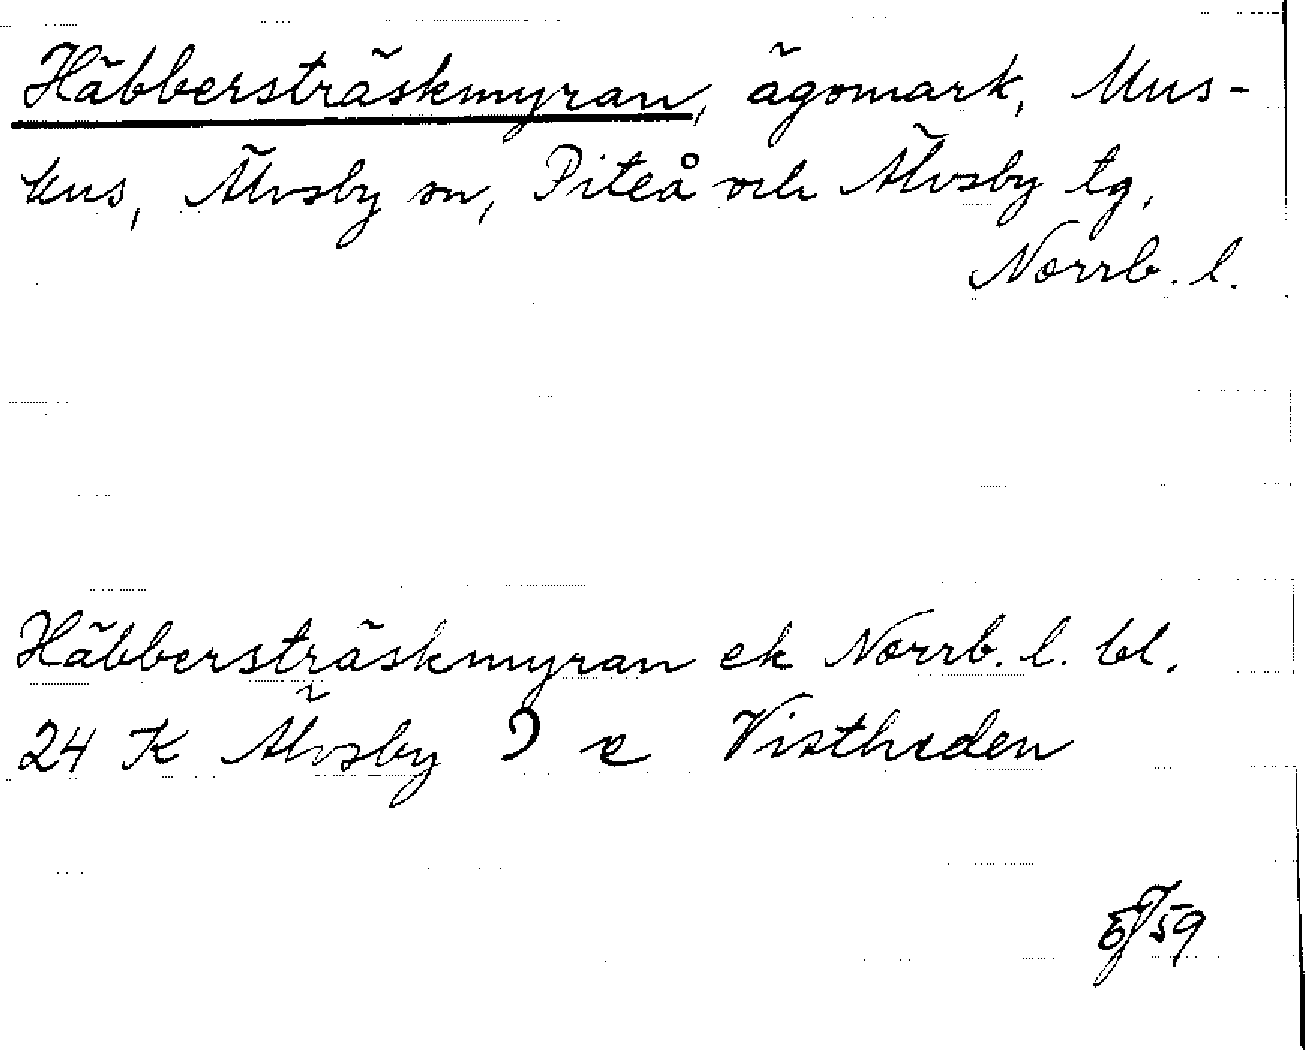 Häbbersträskmyran, ägomark, Mus-
kus, Älvsby sn, Piteå och Älvsby tg,
Norrb. l.
Häbbersträskmyran ek Norrb. l. bl.
24 K Älvsby e Vistheden
59